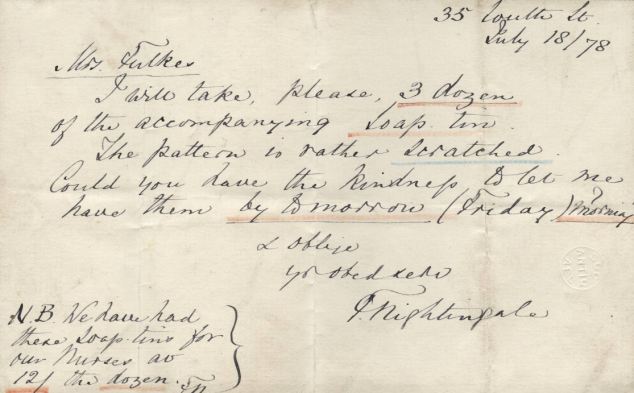 35 South St.
July 18/78
Mrs. Fulkes
I will take, please, 3 dozen
of the accompanying Soap tin.
The pattern is rather scratched.
Could you have the kindness to let me
have them by tomorrow (Friday) morning?
& Oblige
yr obed serv
F. Nightingale
N.B We have had
these Soap tins for
our Nurses at
12/ the dozen. FN